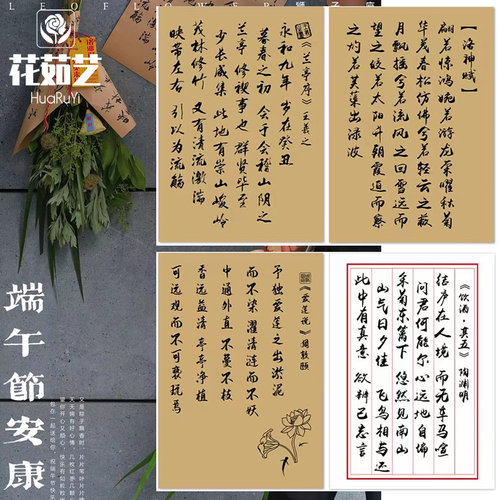 花茹艺
HuaRuYi
端午節安康
《兰亭序》王羲之
永和九年 岁在癸丑
暮春之初 会于会稽山阴之
兰亭 修禊事也 群贤毕至
少长咸集 此地有崇山峻岭
茂林修竹 又有清流激湍
映带左右 引以为流觞
【洛神赋】
翩若惊鸿婉若游龙荣曜秋菊
华茂春松仿佛兮若轻云之蔽
月飘摇兮若流风之回雪远而
望之皎若太阳升朝霞迫而察
之灼若芙蕖出渌波
《爱莲说》周敦颐
予独爱莲之出淤泥
而不染 濯清涟而不妖
中通外直 不蔓不枝
香远益清 亭亭净植
可远观而不可亵玩焉
《饮酒·其五》陶渊明
结庐在人境 而无车马喧
问君何能尔 心远地自偏
采菊东篱下 悠然见南山
山气日夕佳 飞鸟相与还
此中有真意 欲辨已忘言